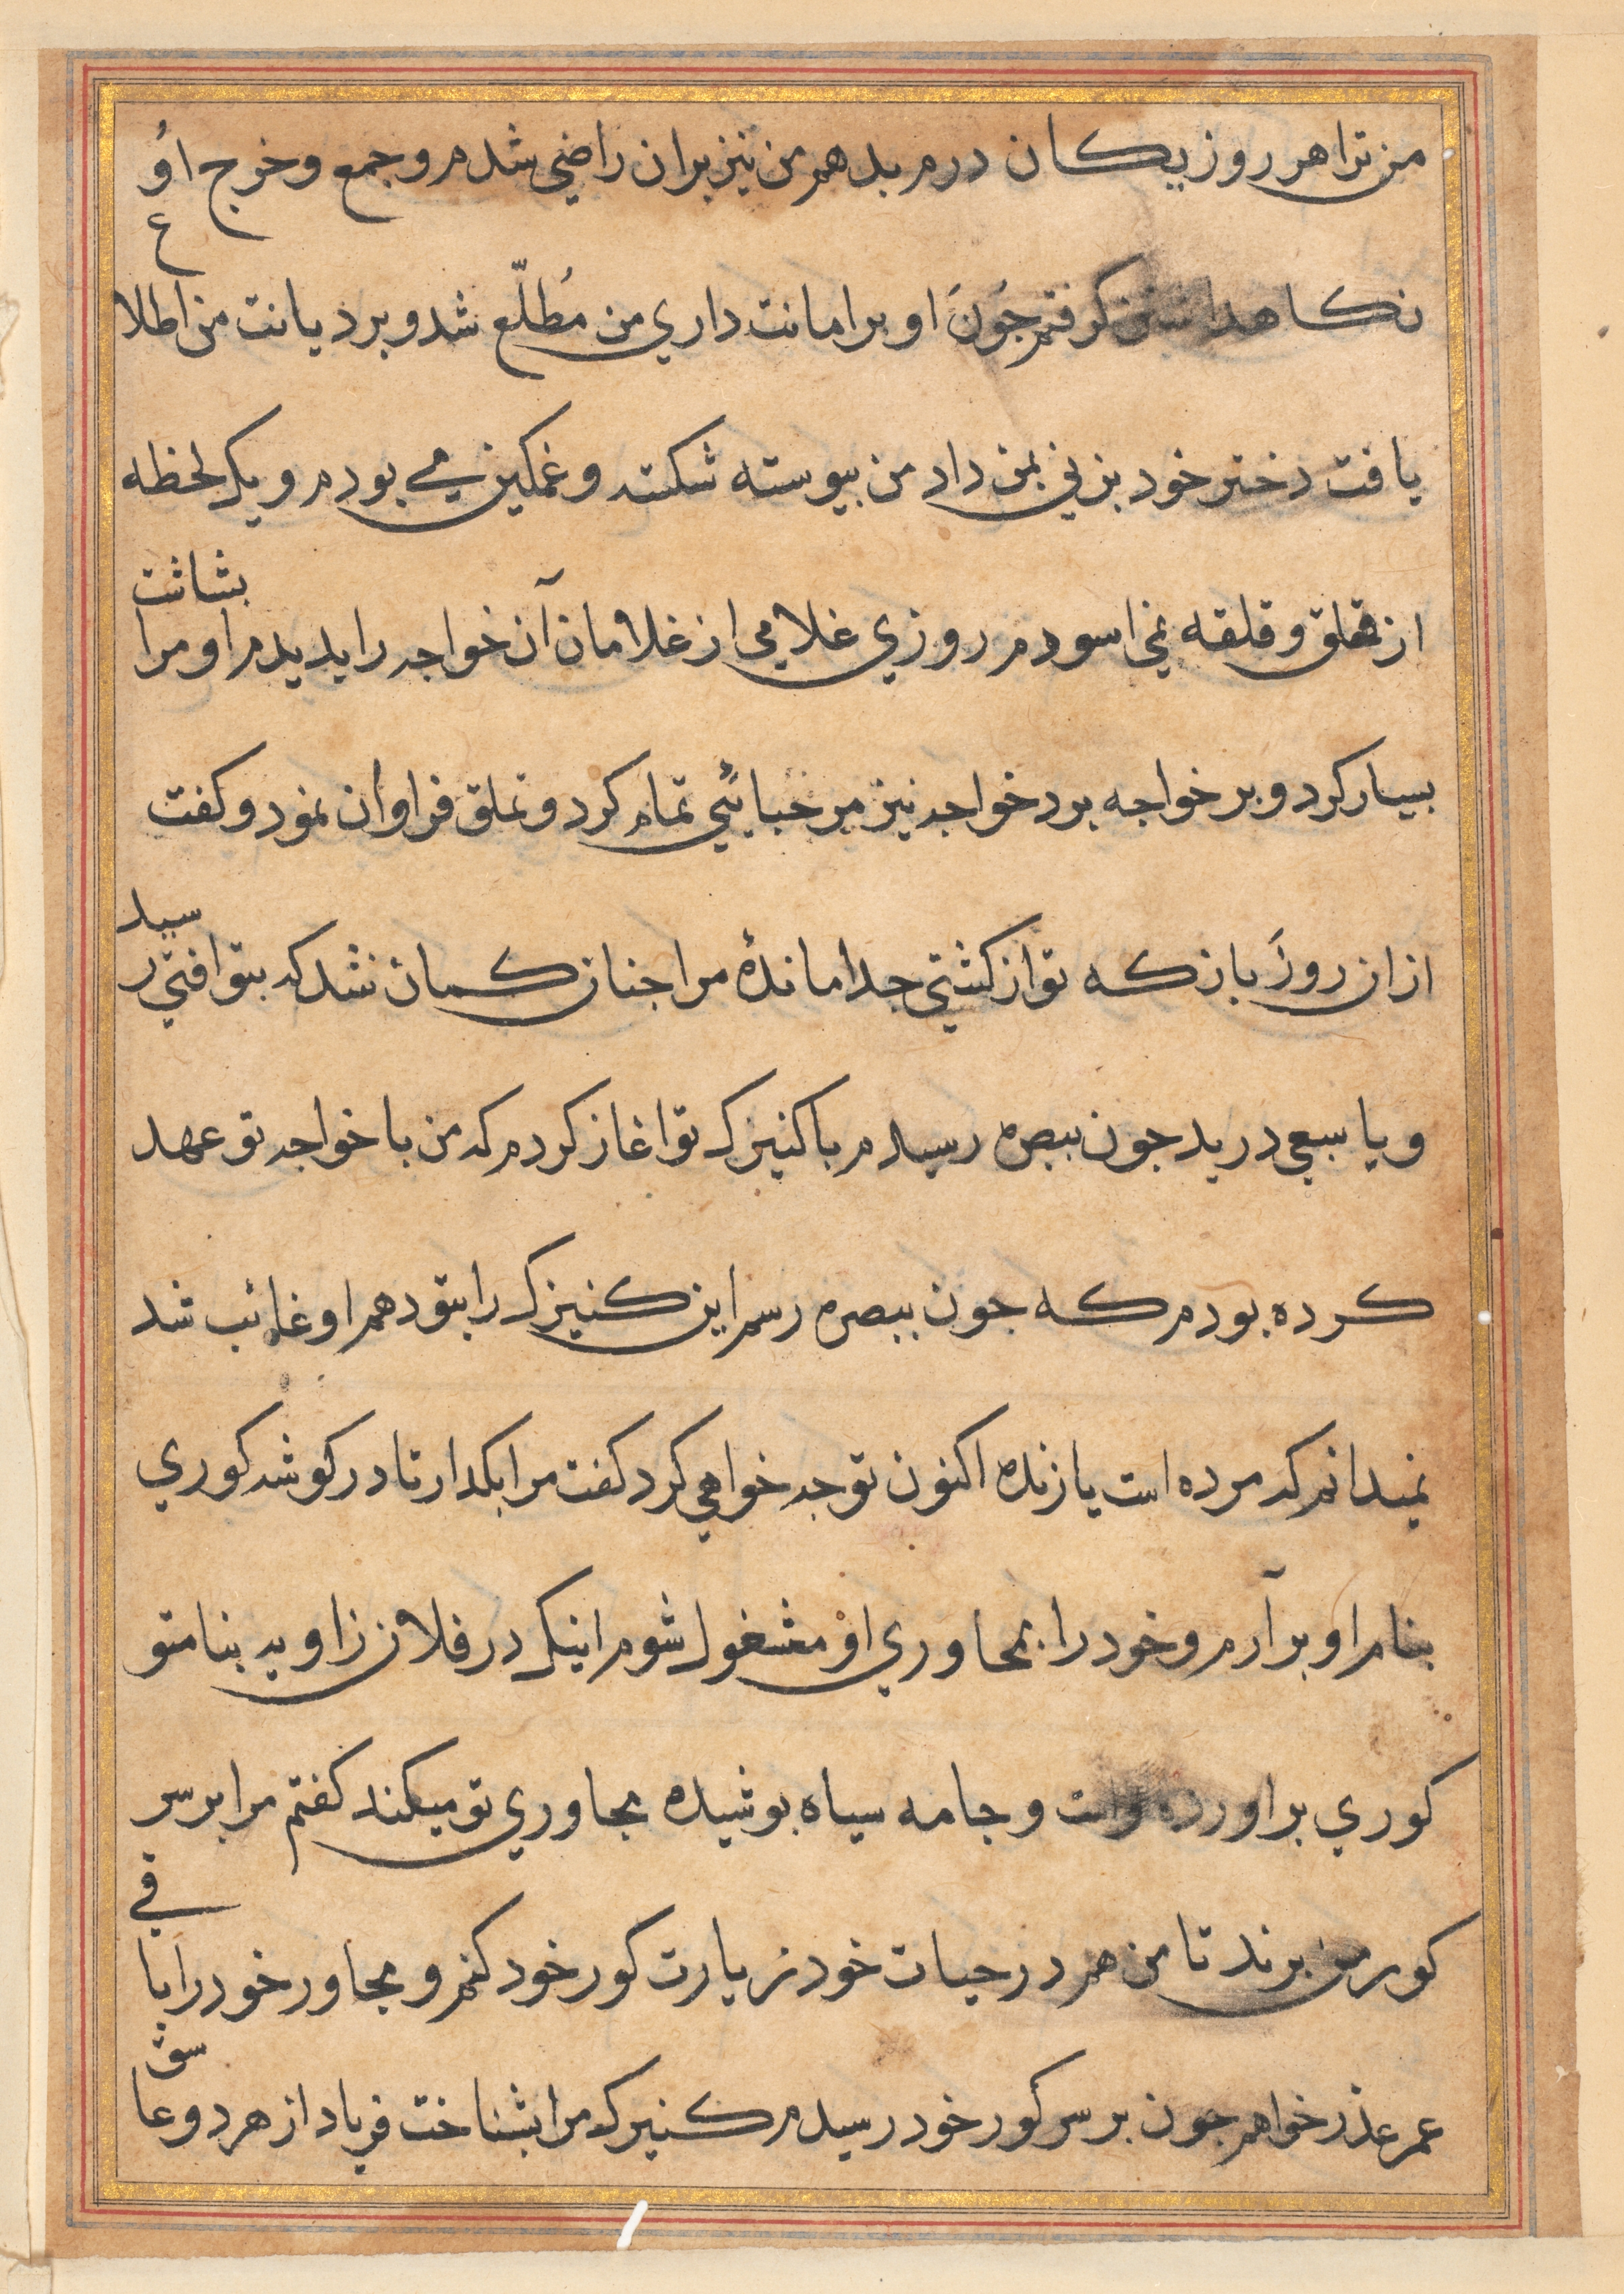 من ترا هر روز یکان درم بدهم من نیز بران راضی شدم و جمع و خرج اوُ
نکاهداشتن کرفتم جَونَ او بر امانت داری من مُطلّع شد و بر دیانت من اطلاع
یافت دختر خود بزنی بمن داد من بیوسته شکسته و غمکین می بودم و یک لحظه
از قلق و قلقه نمی اسودم روزی غلامی از غلامان آن خواجه را بدیدم او مرا بشاشت
بسیار کرد و بر خواجه برد خواجه نیز مرحبائی تمام کرد و تملق فراوان نمود و کفت
ازان روز باز که تو از کشتی جدا ماندهٔ مرا جنان کمان نشد که بتو افتی رسید
و یا سبعی درید جون ببصره رسیدم با کنیزک تو اغاز کردم که من با خواجه تو عهد
کرده بودم که جون ببصره رسم این کنیزک را بتو دهم او غائب شد
نمیدانم که مرده است یا زنده اکنون تو جه خواهی کرد کفت مرا بکدار تا در کوشه کوری
بنام او برآرم و خود را بمجاوری او مشغول شوم اینک در فلان زاویه بنام تو
کوری براورده است و جامه سیاه بوشیده مجاوری تو میکند کفتم مرا بر سر
کور من برند تا من هم در حیات خود زیارت کور خود کنم و مجاور خود را باقی
عمر عذر خواهم جون بر سر کور خود رسیدم کنیزک مرا بشناخت فریاد از هر دو عاشق